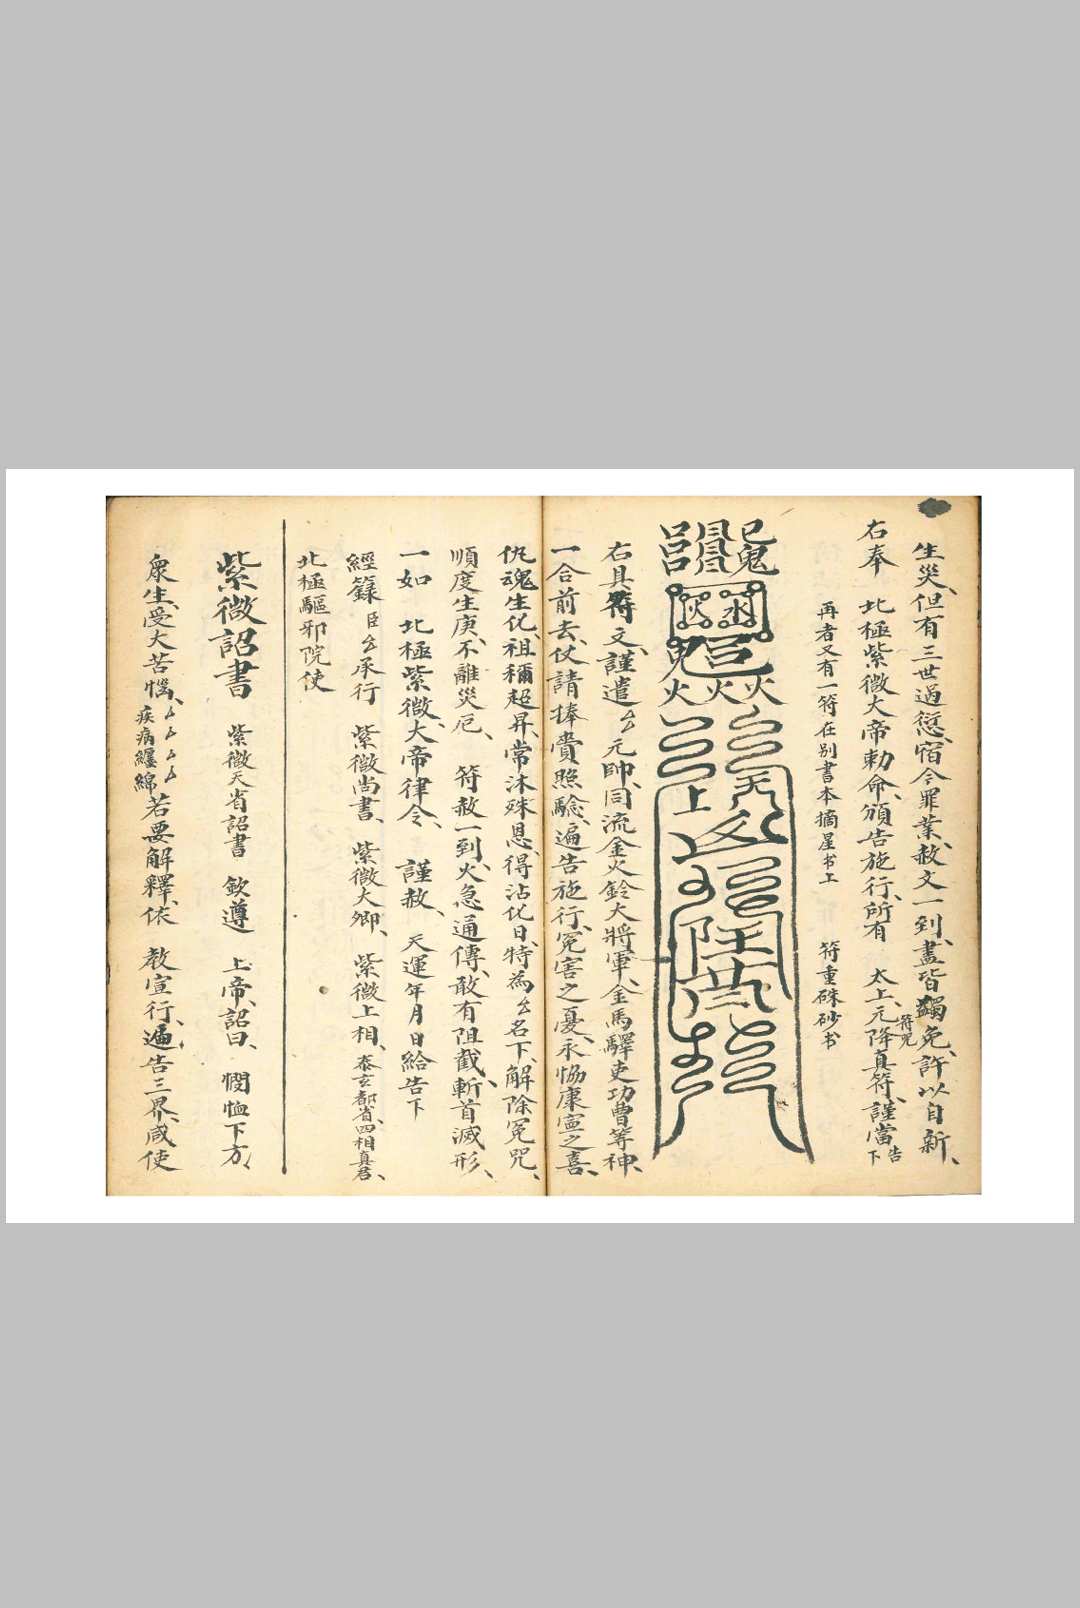 生災、但有三世過愆、宿今罪業、赦文一到、盡皆蠲免、許以自新、
右奉 北極紫微大帝勅命、頒告施行、所有 太上元降真符、謹當告下
符見
再者又有一符在别書本摘星书上 符重硃砂书
右具符文、謹遣 厶元帥、同流金火鈴大將軍、金馬驛吏功曹等神、
一合前去、仗請捧賫照驗、遍告施行、冤害之憂、永恊康寧之喜、
仇魂生化、祖禰超昇、常沐殊恩、得沾化日、特為厶名下、解除冤咒、
順度生庚、不離災厄、 符赦一到、火急通傳、敢有阻截、斬首滅形、
一如 北極紫微大帝律令、 謹赦、 天運年月日給告下
經籙 臣厶承行 紫微尚書、紫微大卿、紫微上相、泰玄都省、四相真君、
北極驅邪院使
紫微詔書 紫微天省詔書 欽遵 上帝、詔曰、 憫恤下方、
衆生、受大苦惱、厶厶厶厶疾病纏綿若要解釋、依 教宣行、遍告三界、咸使